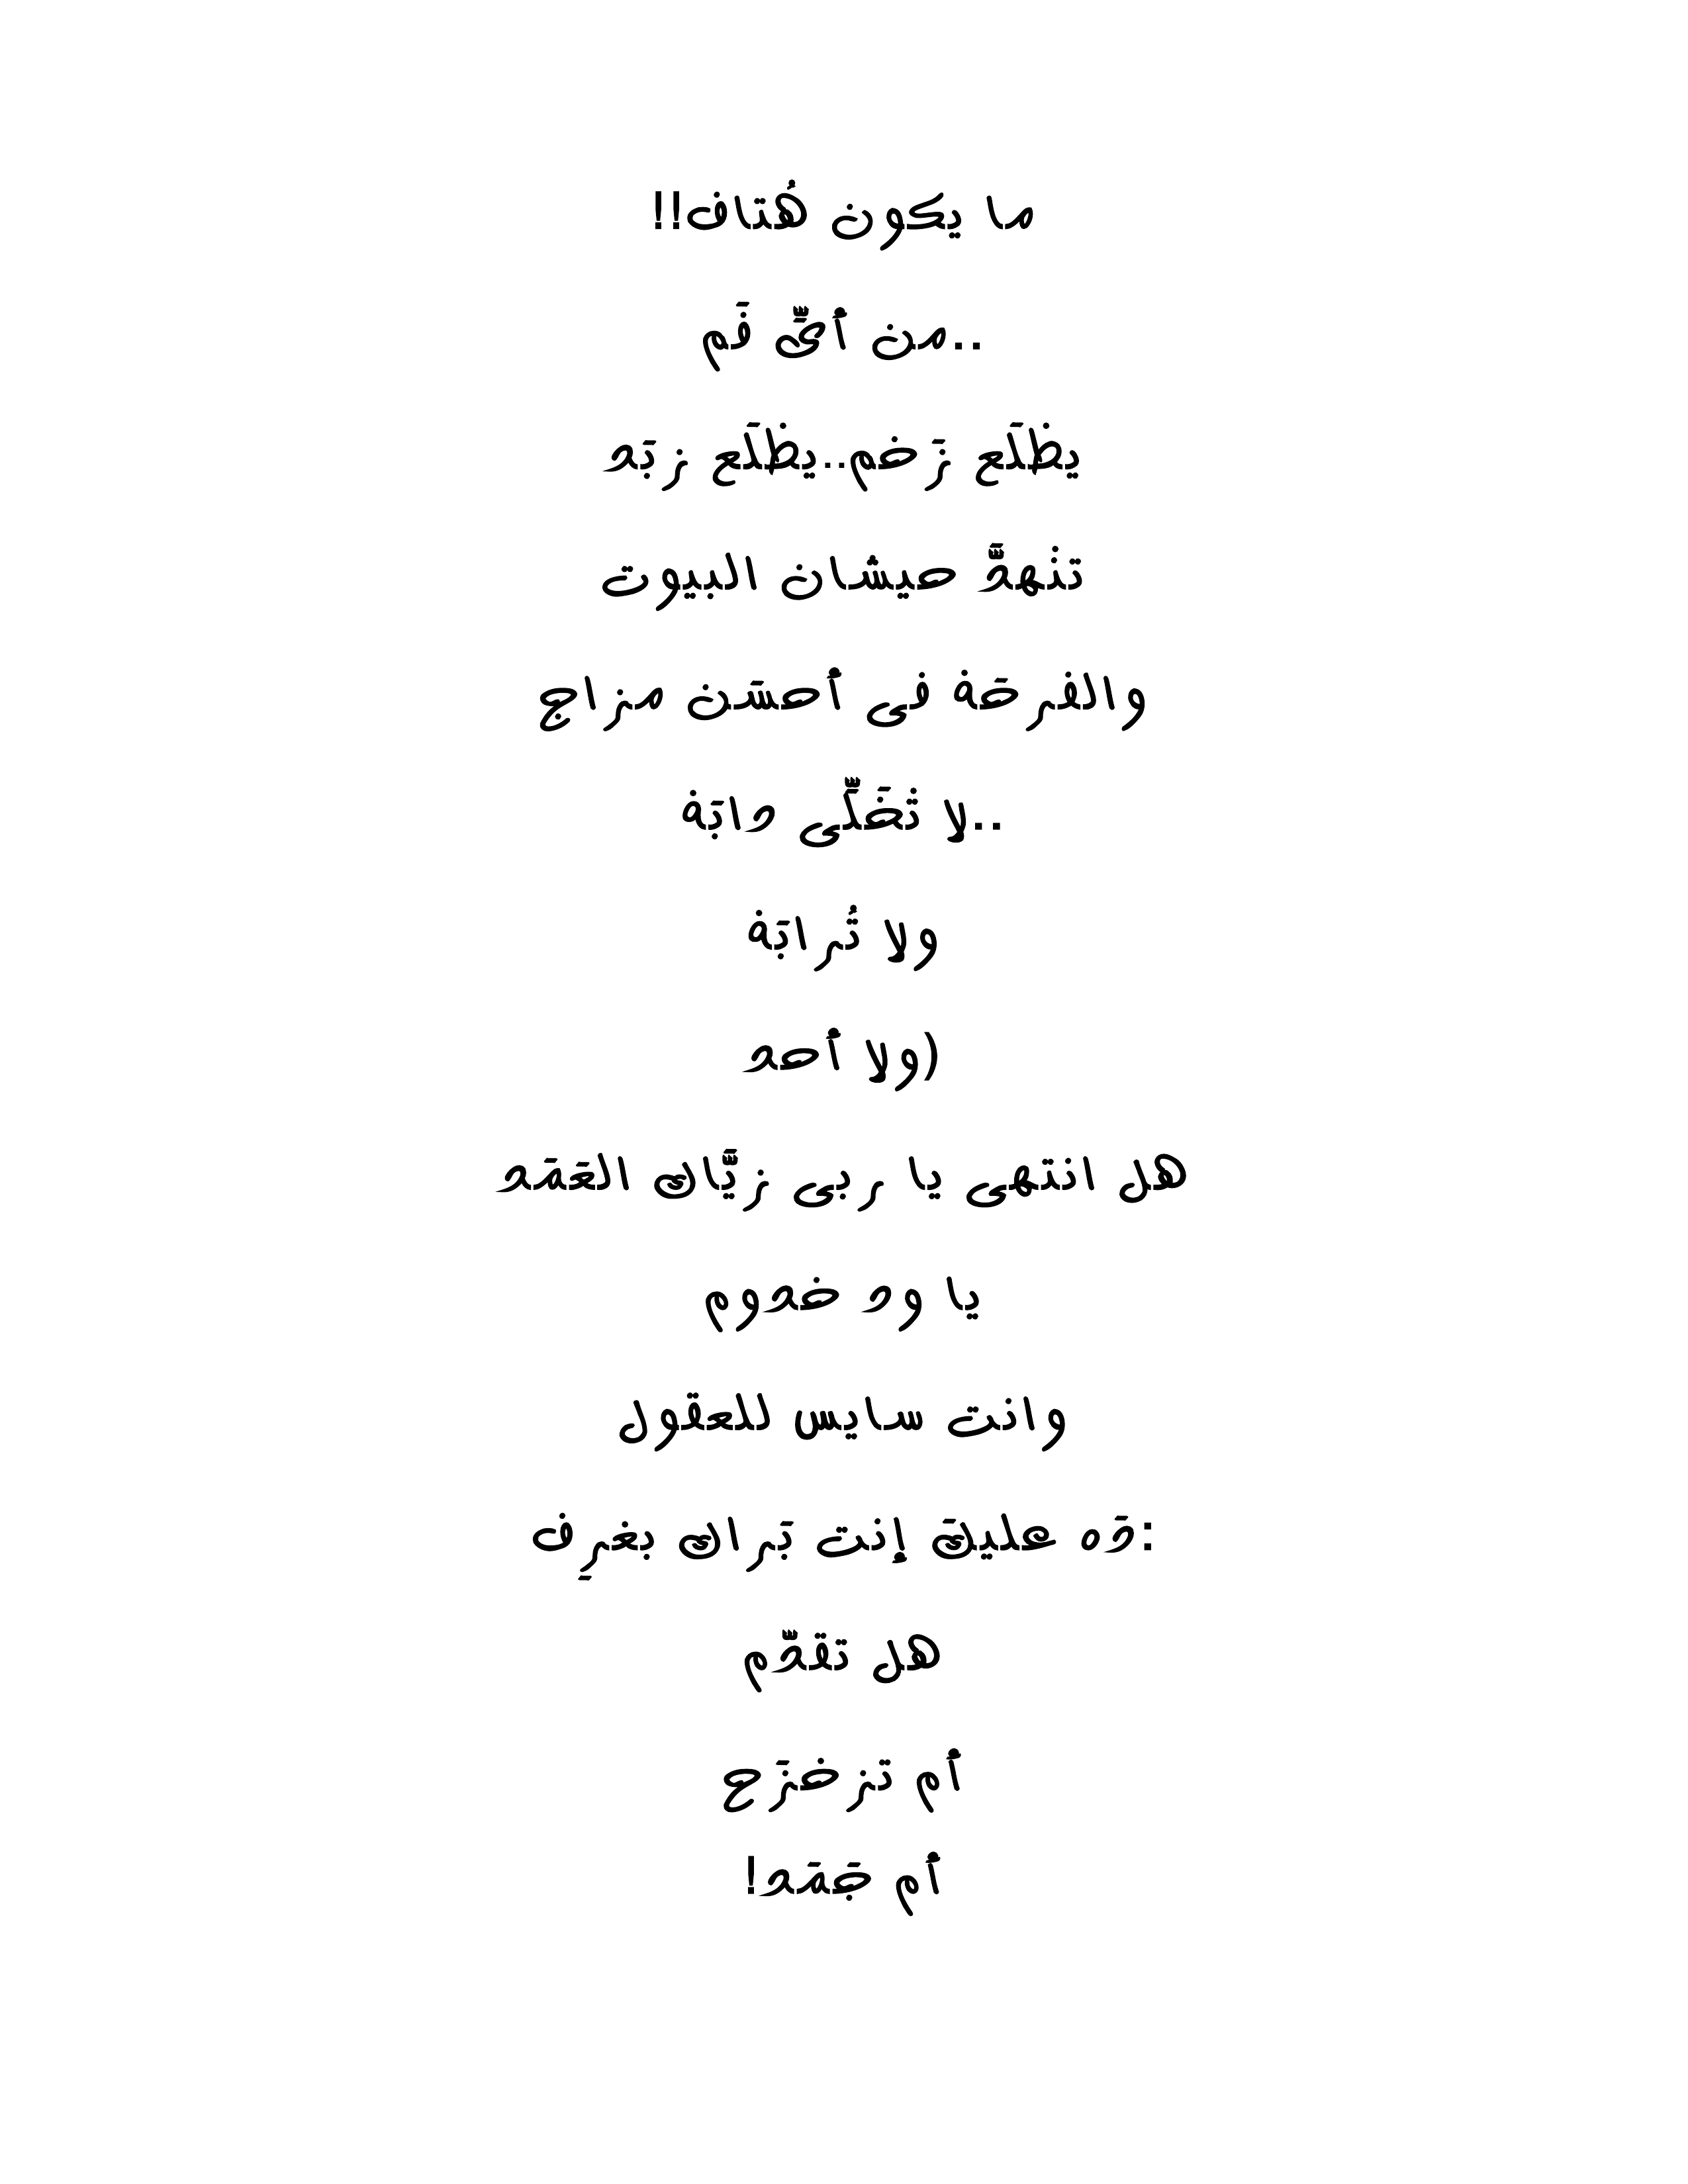 ما يكون هُتاف!!
..من أىِّ فَم
يظلَع زَخم..يظلَع زبَد
تنْهدَّ حيشان البيوت
والفرحَة فى أحسَن مزاج
..لا تْخَلِّى دابَة
ولا تُرابَة
(ولا أحد
هل انتهى يا ربى زيَّاك العَمَد
يا ود خدوم
وانت سايس للعقول
:دَه عليكَ إنت بَراك بغرِف
هل تقدِّم
أم تزخزَح
أم جَمَد!